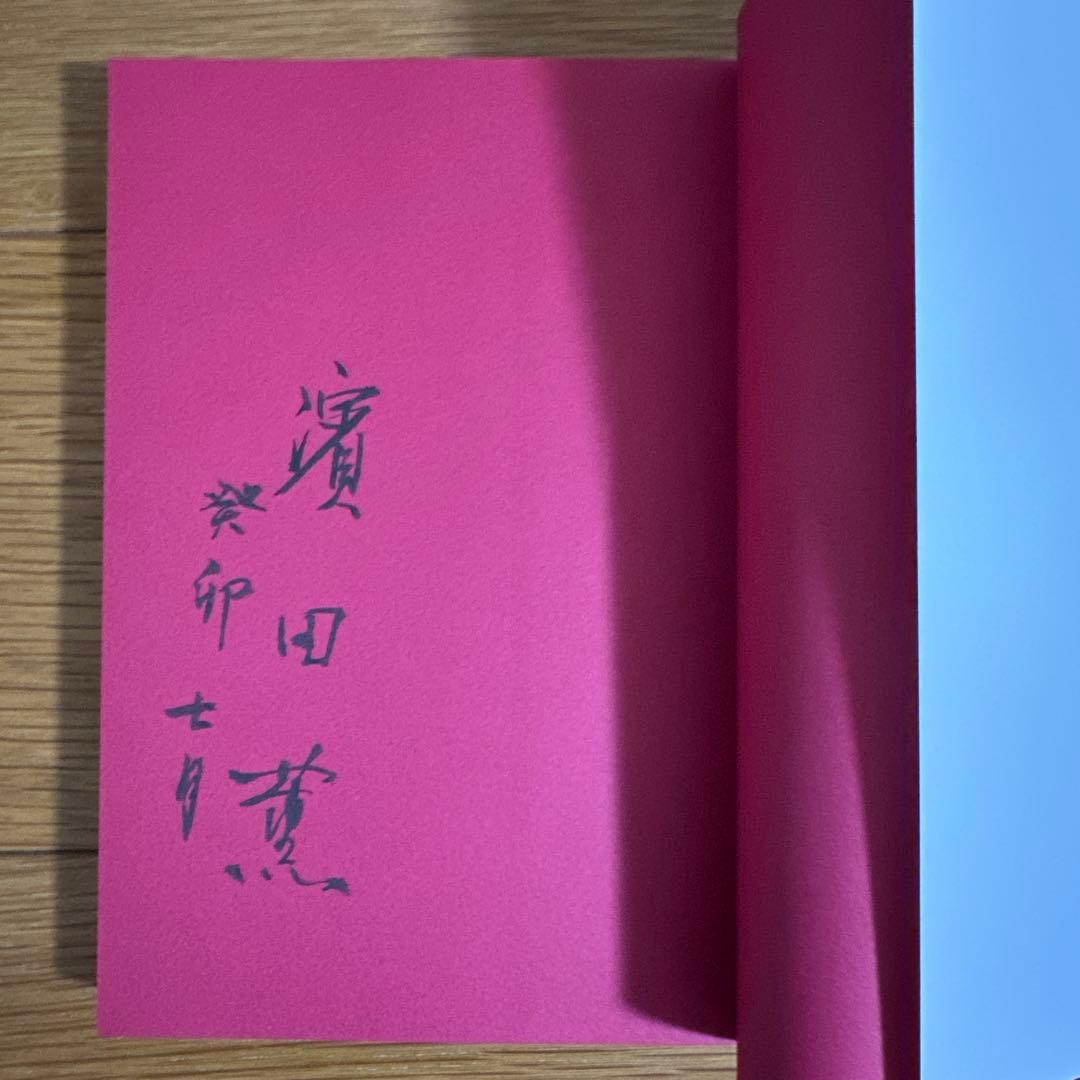 濱田薫
癸卯七月